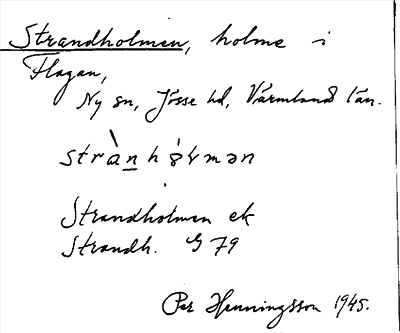 Strandholmen, holme i
Flagan,
Ny sn, Jösse hd, Värmlands län.
Strandholmen ek
Strandh. G 79
Per Henningsson 1945.